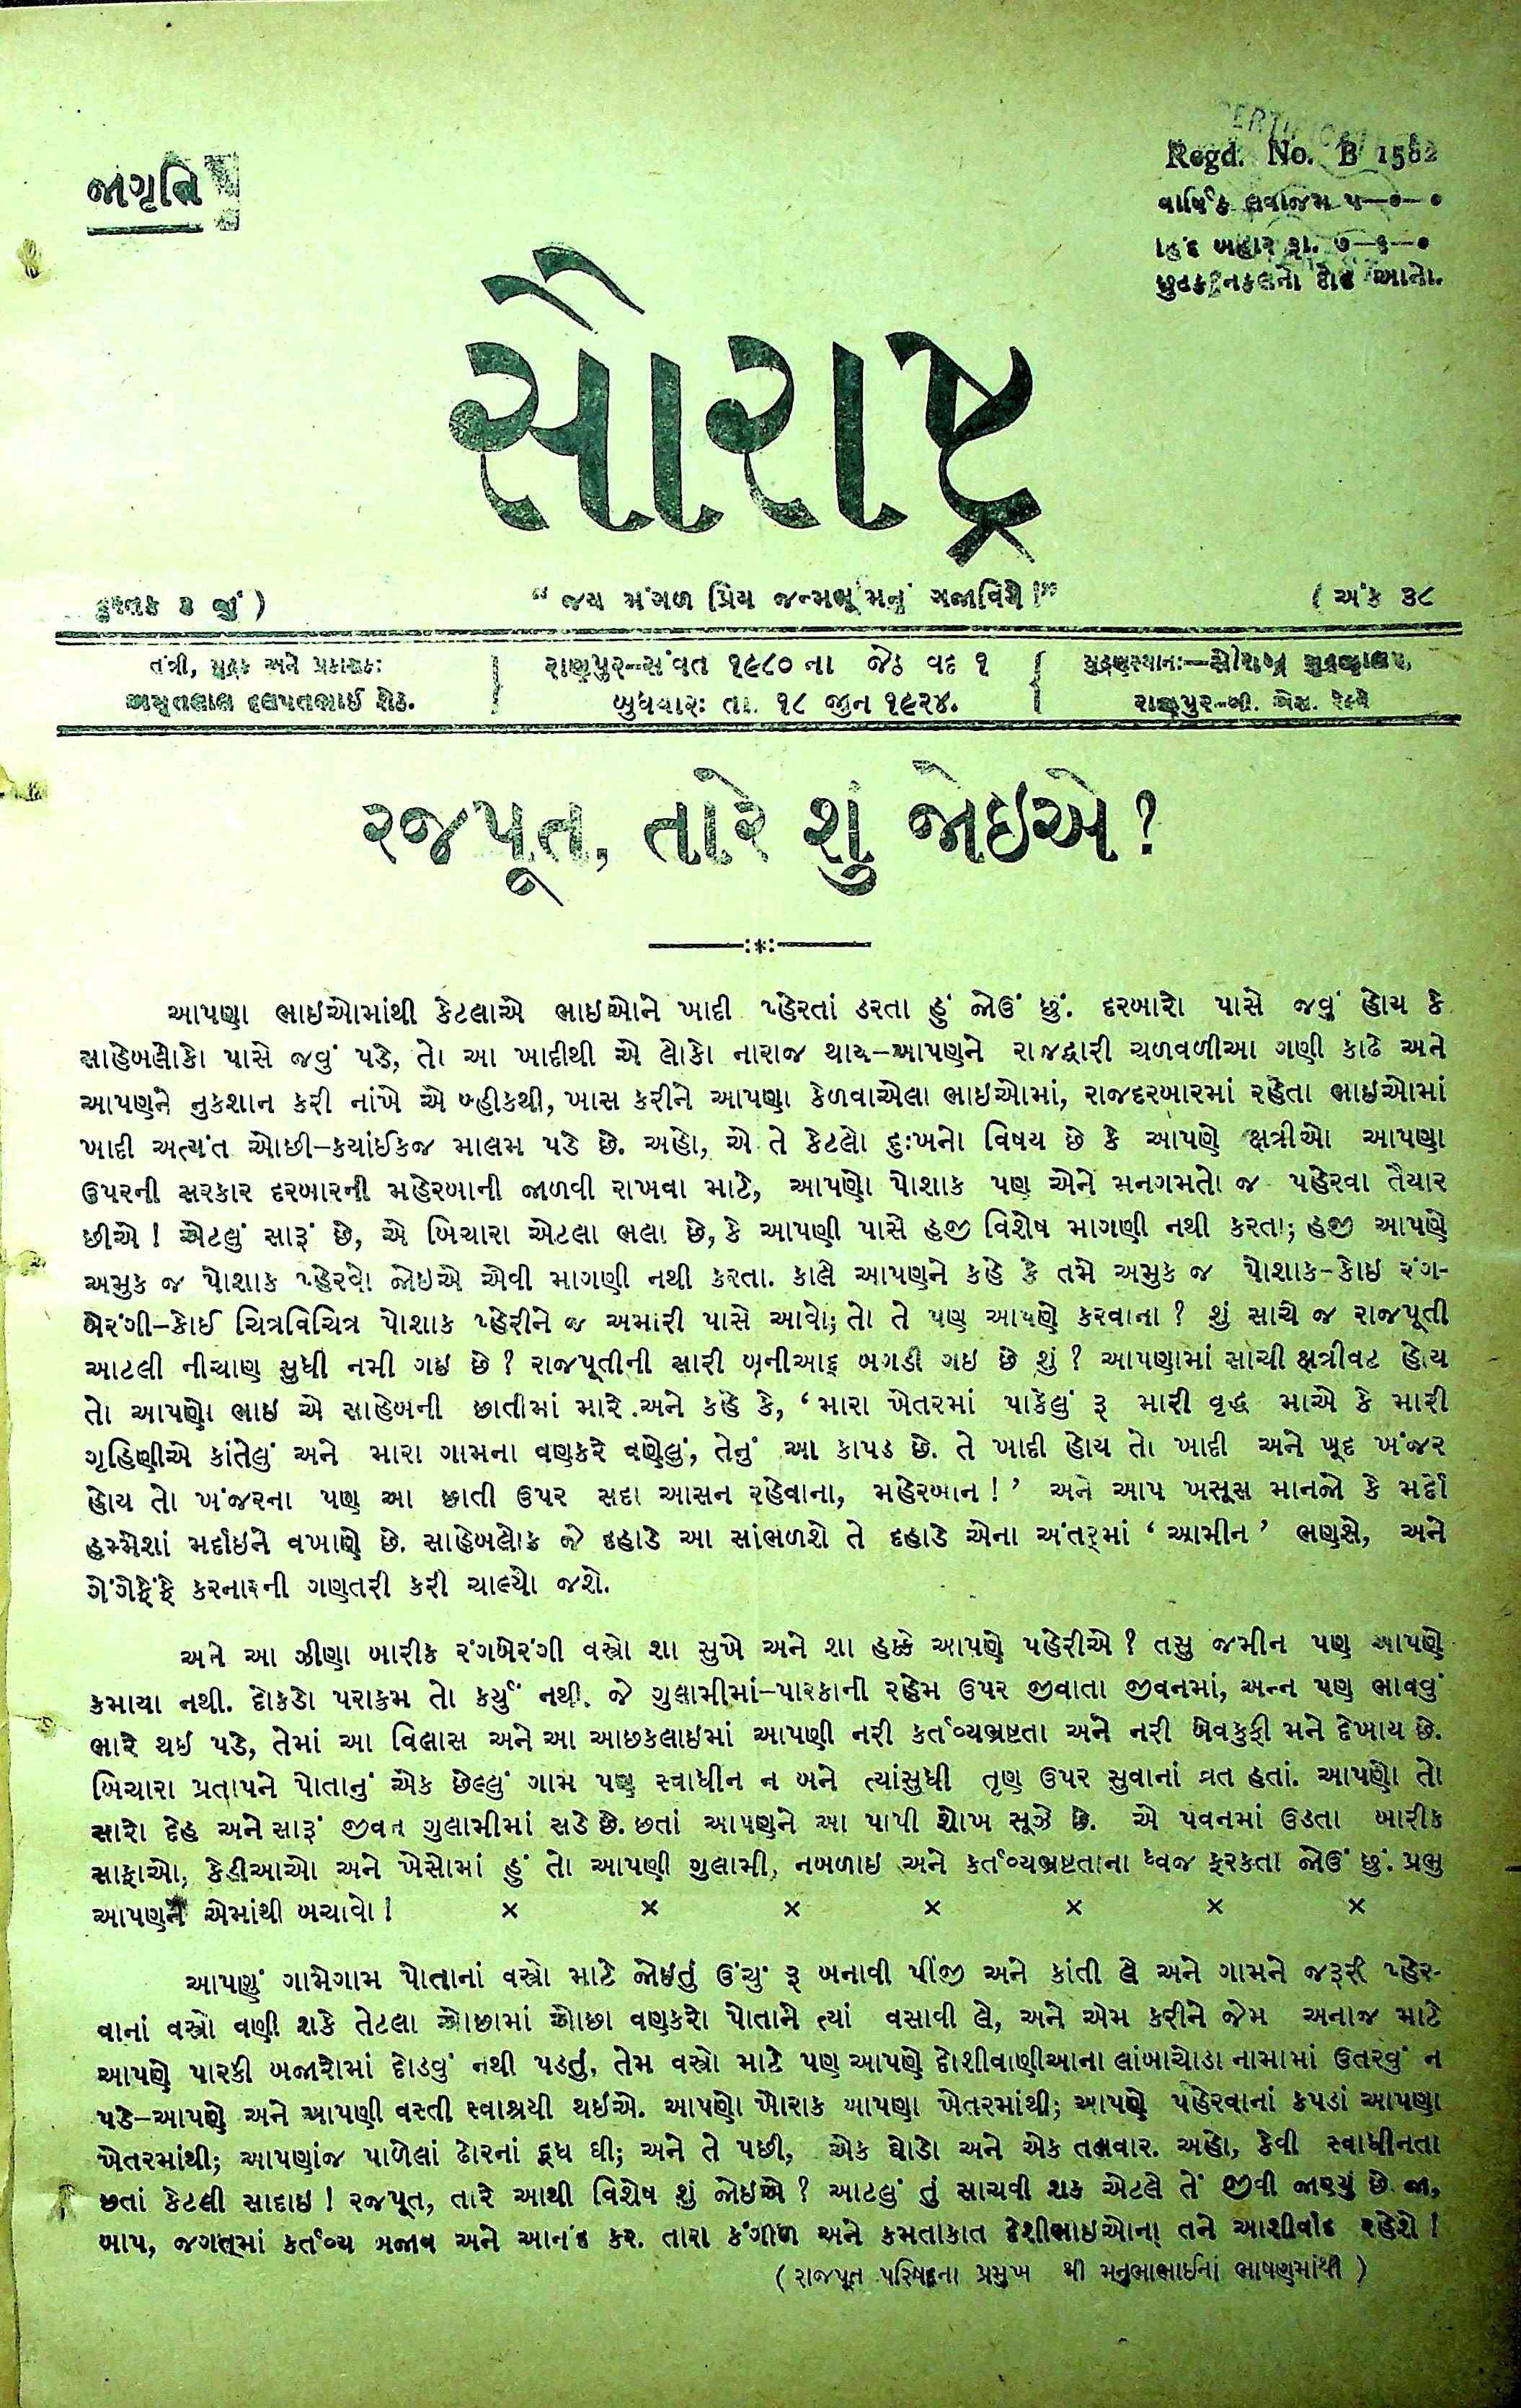 જાગૃતિ
Regd. No. B 1582
વાર્ષિક લવાજમ ૫—૦—૦
હિંદ બહાર રૂા. ૭—૬—૦
છુટક નકલનો દોઢ આનો.
સૌરાષ્ટ્ર
પુસ્તક ૩ જું )
“ જય મંગળ પ્રિય જન્મભૂમિનું ગજાવિયે !”
( અંક ૩૮
તંત્રી, મુદ્રક અને પ્રકાશક:
અમૃતલાલ દલપતભાઈ શેઠ.
રાણપુર–સંવત ૧૯૮૦ ના જેઠ વદ ૧
બુધવાર: તા. ૧૮ જીન ૧૯૨૪.
મુદ્રણસ્થાન:—સૌરાષ્ટ્ર મુદ્રણાલય,
રાણપુર–બી. એસ. રેલ્વે
રજપૂત, તારે શું જોઇએ?
આપણા ભાઇઓમાંથી કેટલાએ ભાઇઓને ખાદી પ્હેરતાં ડરતા હું જોઉં છું. દરબારો પાસે જવું હોય કે
સાહેબલોકો પાસે જવું પડે, તો આ ખાદીથી એ લોકો નારાજ થાય–આપણને રાજદ્વારી ચળવળીઆ ગણી કાઢે અને
આપણને નુકશાન કરી નાંખે એ બ્હીકથી, ખાસ કરીને આપણા કેળવાએલા ભાઇઓમાં, રાજદરબારમાં રહેતા ભાઇઓમાં
ખાદી અત્યંત ઓછી–કયાંઈકજ માલમ પડે છે. અહો, એ તે કેટલો દુઃખનો વિષય છે કે આપણે ક્ષત્રીઓ આપણા
ઉપરની સરકાર દરબારની મહેરબાની જાળવી રાખવા માટે, આપણો પોશાક પણ એને મનગમતો જ પહેરવા તૈયાર
છીએ ! એટલું સારૂં છે, એ બિચારા એટલા ભલા છે, કે આપણી પાસે હજી વિશેષ માગણી નથી કરતા; હજી આપણે
અમુક જ પોશાક પ્હેરવો જોઇએ એવી માગણી નથી કરતા. કાલે આપણને કહે કે તમે અમુક જ પોશાક–કોઇ રંગ-
બેરંગી–કોઈ ચિત્રવિચિત્ર પોશાક પ્હેરીને જ અમારી પાસે આવો; તો તે પણ આપણે કરવાના ? શું સાચે જ રાજપૂતી
આટલી નીચાણ સુધી નમી ગઇ છે ? રાજપૂતીની સારી બુનીઆદ બગડી ગઇ છે શું ? આપણામાં સાચી ક્ષત્રીવટ હોય
તો આપણો ભાઇ એ સાહેબની છાતીમાં મારે અને કહે કે, ‘ મારા ખેતરમાં પાકેલું રૂ મારી વૃદ્ધ માએ કે મારી
ગૃહિણીએ કાંતેલું અને મારા ગામના વણકરે વણેલું, તેનું આ કાપડ છે. તે ખાદી હોય તો ખાદી અને ખૂદ ખંજર
હોય તો ખંજરના પણ આ છાતી ઉપર સદા આસન રહેવાના, મહેરબાન ! ’ અને આપ ખસૂસ માનજો કે મર્દો
હમ્મેશાં મર્દાઇને વખાણે છે. સાહેબલોક જે દહાડે આ સાંભળશે તે દહાડે એના અંતર્‌માં ‘ આમીન ’ ભણસે, અને
ગેંગેફેંફે કરનારની ગણતરી કરી ચાલ્યો જશે.
અને આ ઝીણા બારીક રંગબેરંગી વસ્ત્રો શા સુખે અને શા હક્કે આપણે પહેરીએ ? તસુ જમીન પણ આપણે
કમાયા નથી. દોકડો પરાકમ તો કર્યું નથી. જે ગુલામીમાં–પારકાની રહેમ ઉપર જીવાતા જીવનમાં, અન્ન પણ ભાવવું
ભારે થઇ પડે, તેમાં આ વિલાસ અને આ આછકલાઇમાં આપણી નરી કર્તવ્યભ્રષ્ટતા અને નરી બેવકુફી મને દેખાય છે.
બિચારા પ્રતાપને પોતાનું એક છેલ્લું ગામ પણ સ્વાધીન ન બને ત્યાંસુધી તૃણ ઉપર સુવાનાં વ્રત હતાં. આપણો તો
સારો દેહ અને સારૂં જીવન ગુલામીમાં સડે છે. છતાં આપણને આ પાપી શોખ સૂઝે છે. એ પવનમાં ઉડતા બારીક
સાફાઓ, કેડીઆઓ અને ખેસોમાં હું તો આપણી ગુલામી, નબળાઇ અને કર્તવ્યભ્રષ્ટતાના ધ્વજ ફરકતા જોઉં છું. પ્રભુ
આપણને એમાંથી બચાવો ! × × × × × × ×
આપણું ગામેગામ પોતાનાં વસ્ત્રો માટે જોઇતું ઉંચું રૂ બનાવી પીંજી અને કાંતી લે અને ગામને જરૂરી પ્હેર-
વાનાં વસ્ત્રો વણી શકે તેટલા ઓછામાં ઓછા વણકરો પોતાને ત્યાં વસાવી લે, અને એમ કરીને જેમ અનાજ માટે
આપણે પારકી બજારોમાં દોડવું નથી પડતું, તેમ વસ્ત્રો માટે પણ આપણે દોશીવાણીઆના લાંબાચોડા નામામાં ઉતરવું ન
પડે–આપણે અને આપણી વસ્તી સ્વાશ્રયી થઇએ. આપણો ખોરાક આપણા ખેતરમાંથી; આપણે પહેરવાનાં કપડાં આપણા
ખેતરમાંથી; આપણાંજ પાળેલાં ઢોરનાં દૂધ ઘી; અને તે પછી, એક ઘોડો અને એક તલવાર. અહો, કેવી સ્વાધીનતા
છતાં કેટલી સાદાઇ ! રજપૂત, તારે આથી વિશેષ શું જોઇએ ? આટલું તું સાચવી શક એટલે તેં જીવી જાણ્યું છે. જા,
બાપ, જગત્‌માં કર્તવ્ય બજાવ અને આનંદ કર. તારા કંગાળ અને કમતાકાત દેશીભાઇઓના તને આશીર્વાદ રહેશે !
( રાજપૂત પરિષદ્‌ના પ્રમુખ શ્રી મનુભાભાઈનાં ભાષણમાંથી )